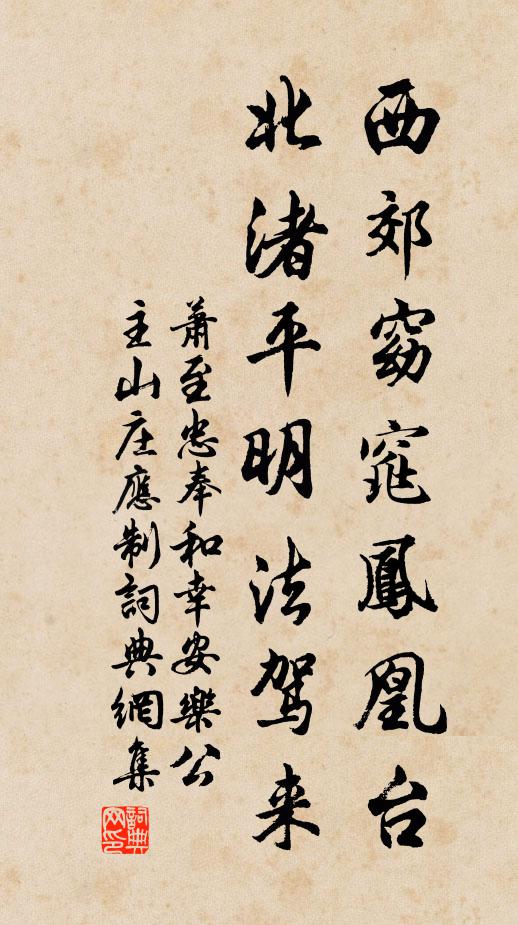 西郊窈窕鳳凰台
北渚平明法駕来
蕭至忠奉和幸安樂公
主山庄應制詞典網集
詞典
网印